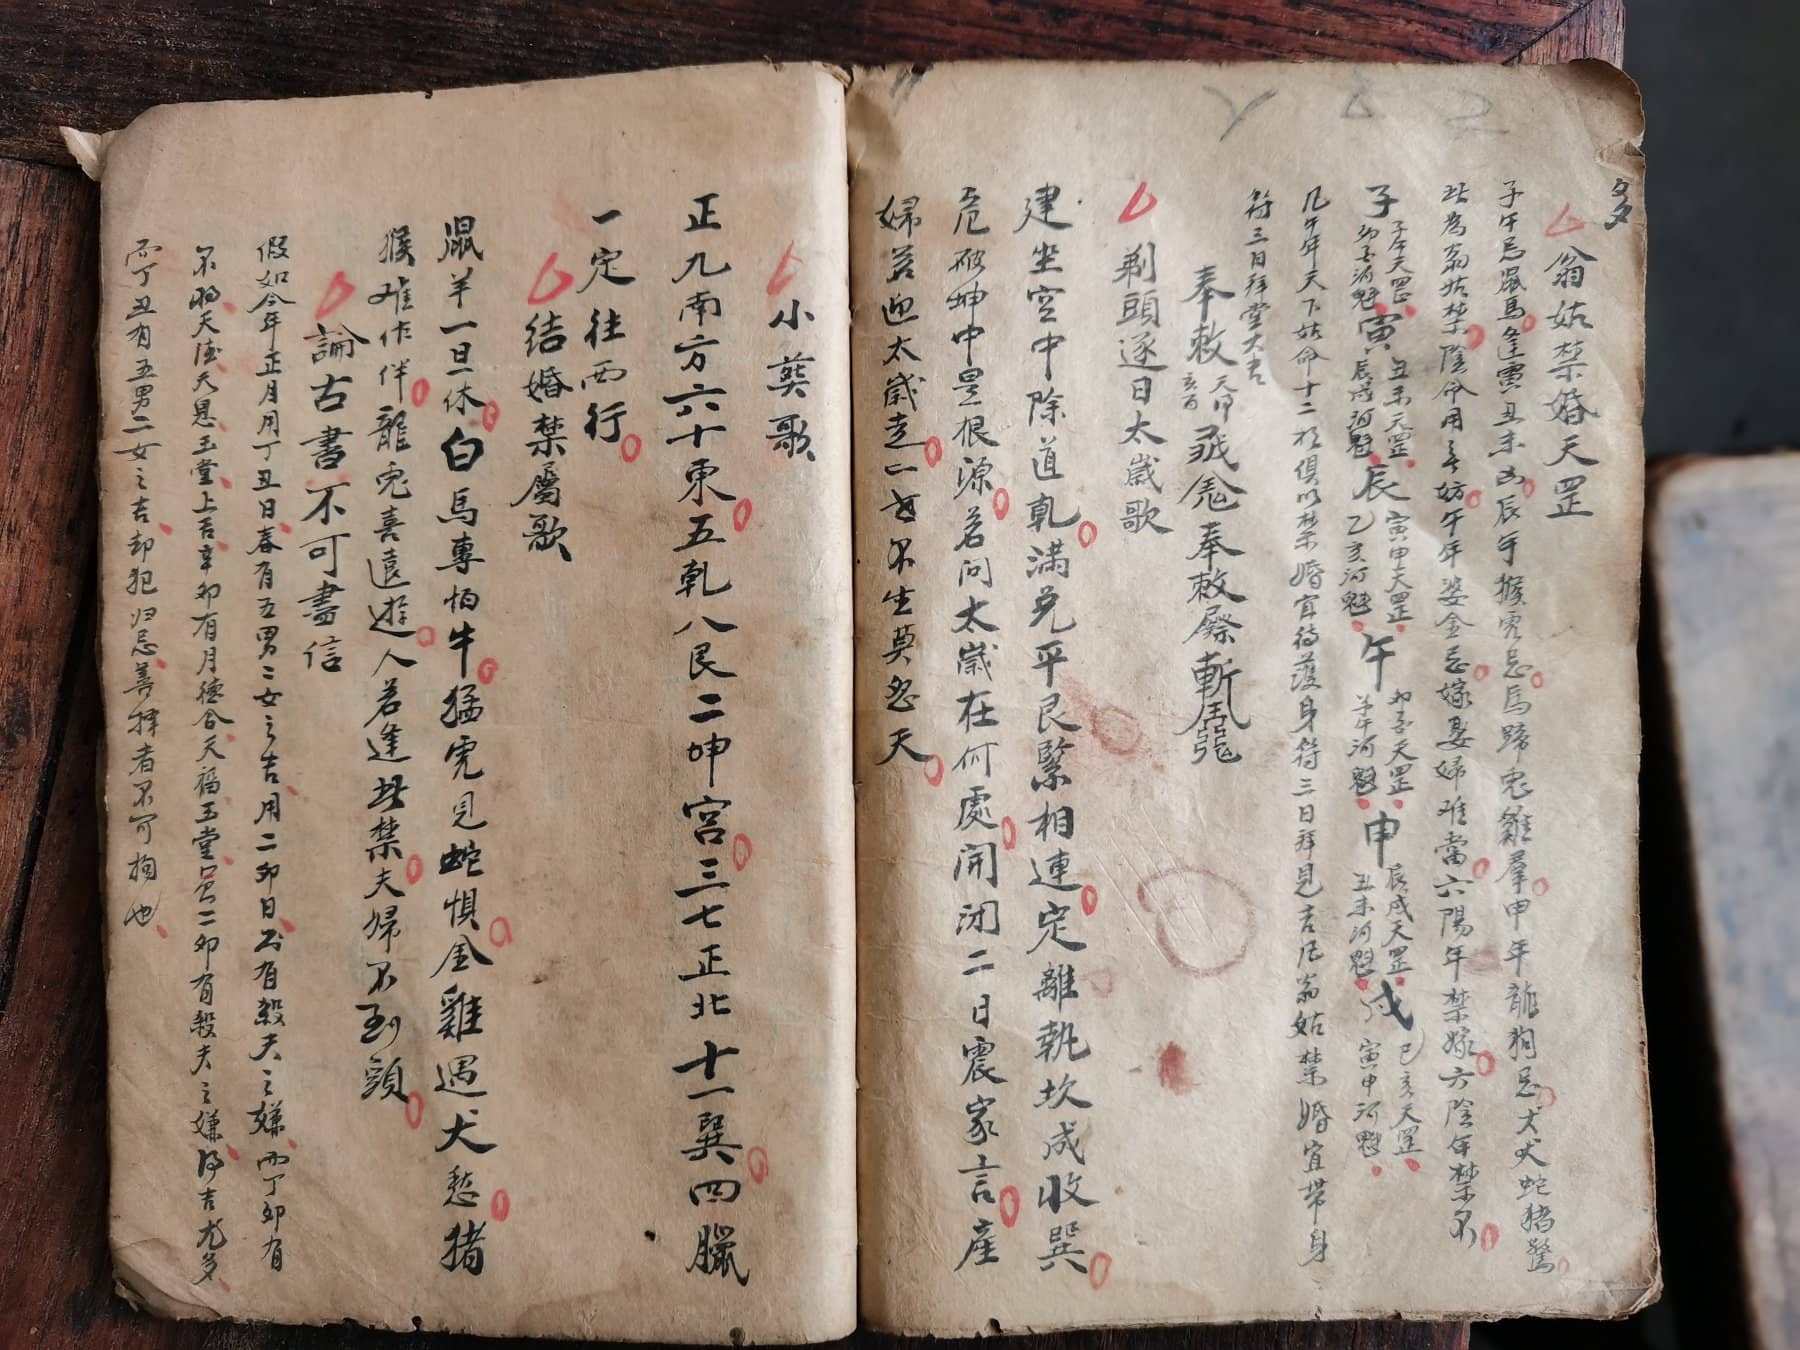 多
翁姑禁婚天罡
子午忌鼠馬逢寅丑未凶辰年猴虎忌馬蹄兔雞羣申年龍狗忌犬戌蛇猪驚
此為翁姑禁陰命用無妨午年婆金忌嫁娶婦难當六陽年禁嫁六陰年禁不
子 子午天罡 卯子河魁 寅 丑未天罡 辰戌河魁 辰 寅申天罡 乙亥河魁 午 卯子天罡 子午河魁 申 辰戌天罡 丑未河魁 戌 巳亥天罡 寅申河魁
凡午年天下姑命十二个俱以禁婚宜待護身符三日拜見吉凡翁姑禁婚宜帶身
符三日拜堂大吉
奉敕 奉敕 斬
剃頭逐日太歲歌
建坐空中除道乹滿兑平艮緊相連定離執坎成收巽
危破坤中是根源若问太歲在何處開闭二日震家言產
婦若迎太歲走一世不生莫怨天
小葬歌
正九南方六十東五乹八艮二坤宮三七正北十一巽四臘
一定往西行
结婚禁屬歌
鼠羊一旦休白馬專怕牛猛虎見蛇惧金雞遇犬愁猪
猴难作伴龍兔喜遠遊人若逢此禁夫婦不到頭
論古書不可盡信
假如今年正月用丁丑日春有五男二女之吉用二卯日公有殺夫之嫌而丁卯有
不將天德天恩玉堂上吉辛卯有月德合天福玉堂只二卯有殺夫之嫌得吉尤多
而丁丑有五男二女之吉却犯归忌善擇者不可拘也